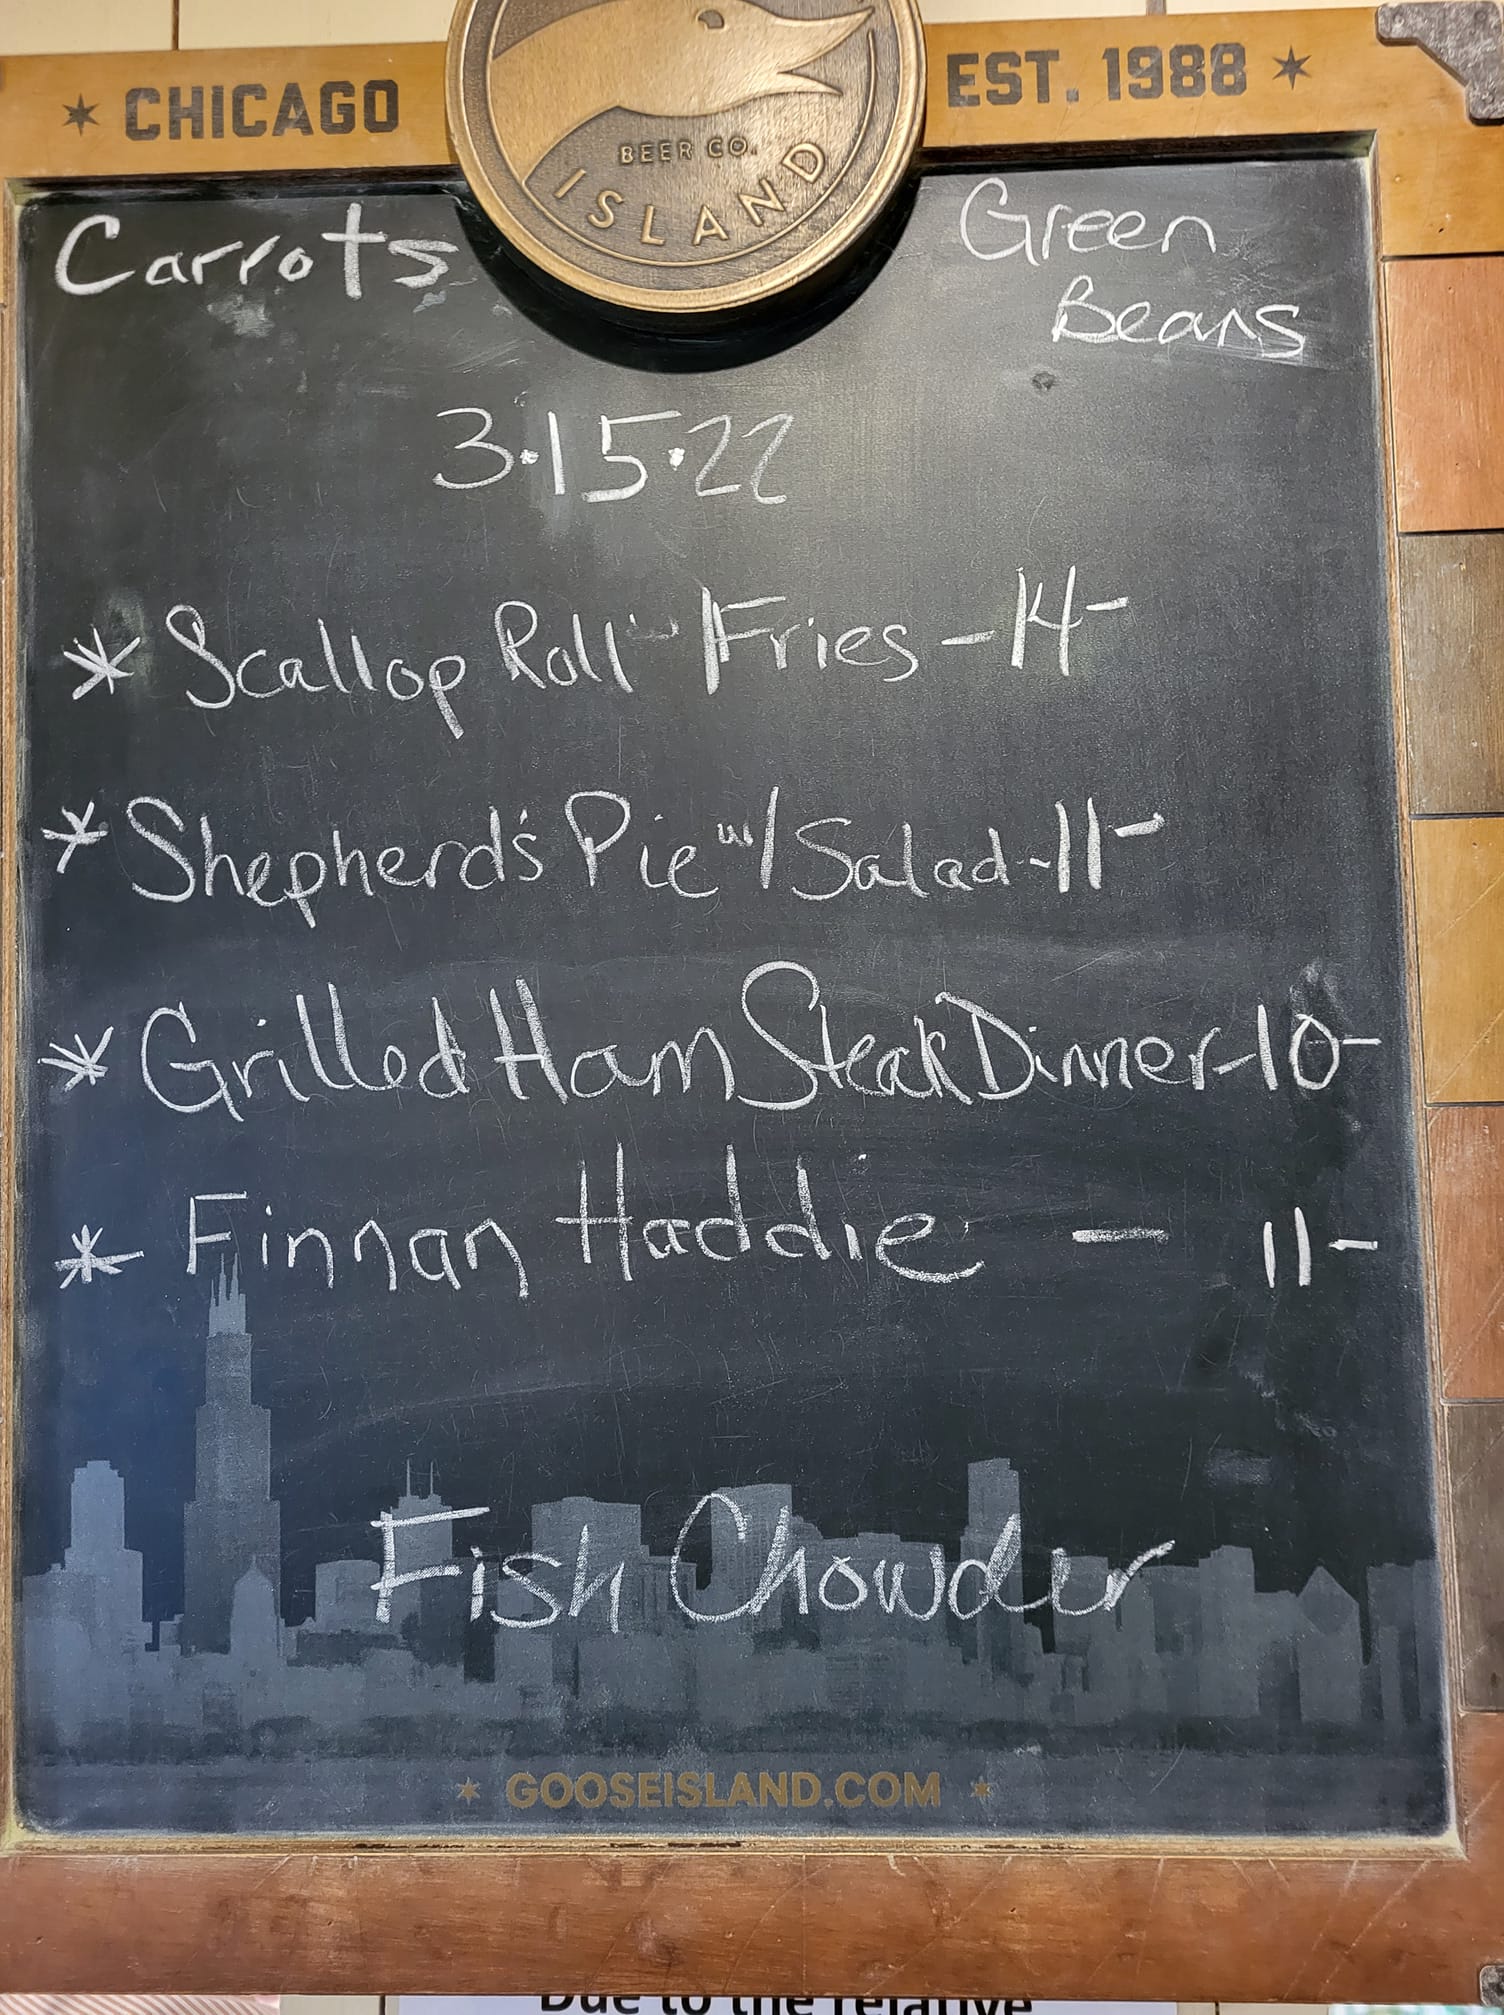 CHICAGO
EST. 1988
BEER CO.
ISLAND
Carrots
Green
Beans
3.15.22
* Scallop Roll Fries - 14-
* Shepherd's Pie w/ Salad - 11-
* Grilled Ham Steak Dinner - 10-
* Finnan Haddie - 11-
Fish Chowder
GOOSEISLAND.COM
Due to the relative